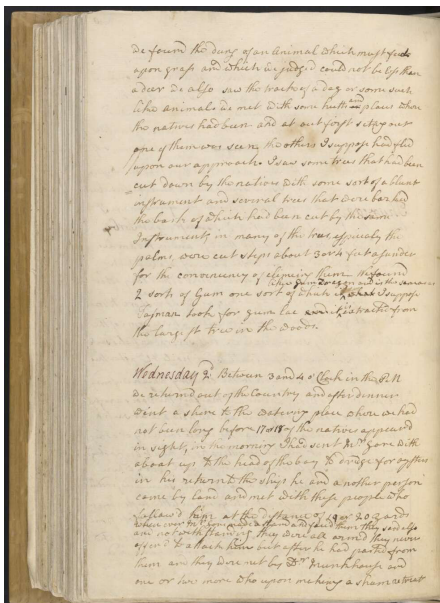 We found the dung of an Animal which must feed
upon grass and which we judged could not be less than
a deer we also saw the track of a dog or some such
like animal. we met with some hutts and places where
the natives had been and at our first seting out
one of them was seen the others I suppose had fled
upon our approach. I saw some trees that had been
cut down by the natives with some sort of a blunt
instrument and several trees that were barked
the bark of which had been cut by the same
Instrument, in many of the trees, especialy the
palms, were cut steps about 3 or 4 feet asunder
for the conveniency of climeing them. We found
2 sorts of Gum one sort of which is like Gum Dragon and is the same as I suppose
Tasman took for Gum lac it is extracted from
the largest tree in the woods.
Wednesday 2d. Between 3 and 4 o'Clock in the P.M
we returned out of the Country and after dinner
went a shore to the watering place where we had
not been long before 17 or 18 of the natives appeared
in sight, in the morning I had sent Mr. Gore with
a boat up to the head of the bay to dridge for oysters
in his return to the ship he and another person
came by land and met with these people who
follow'd him at the distance of 10 or 20 yards
when ever Mr. Gore made a stand and faced them they stood also
and notwithstanding they were all arm'd they never
offer'd to attack him but after he had parted from
them they were met by Dr. Munkhouse and
one or two more who upon makeing a sham retreat